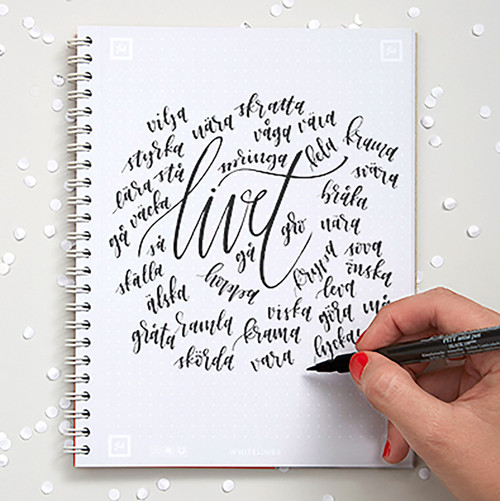 vilja nära skratta
våga växa
styrka springa leda krama
lära stå svära
gå växla livet bråka
så gå gro nära
skälla hoppa krypa sova
älska leva önska
gråta ramla viska göra må
skörda krama lyckas
vara
PITT artist pen
WHITELINES